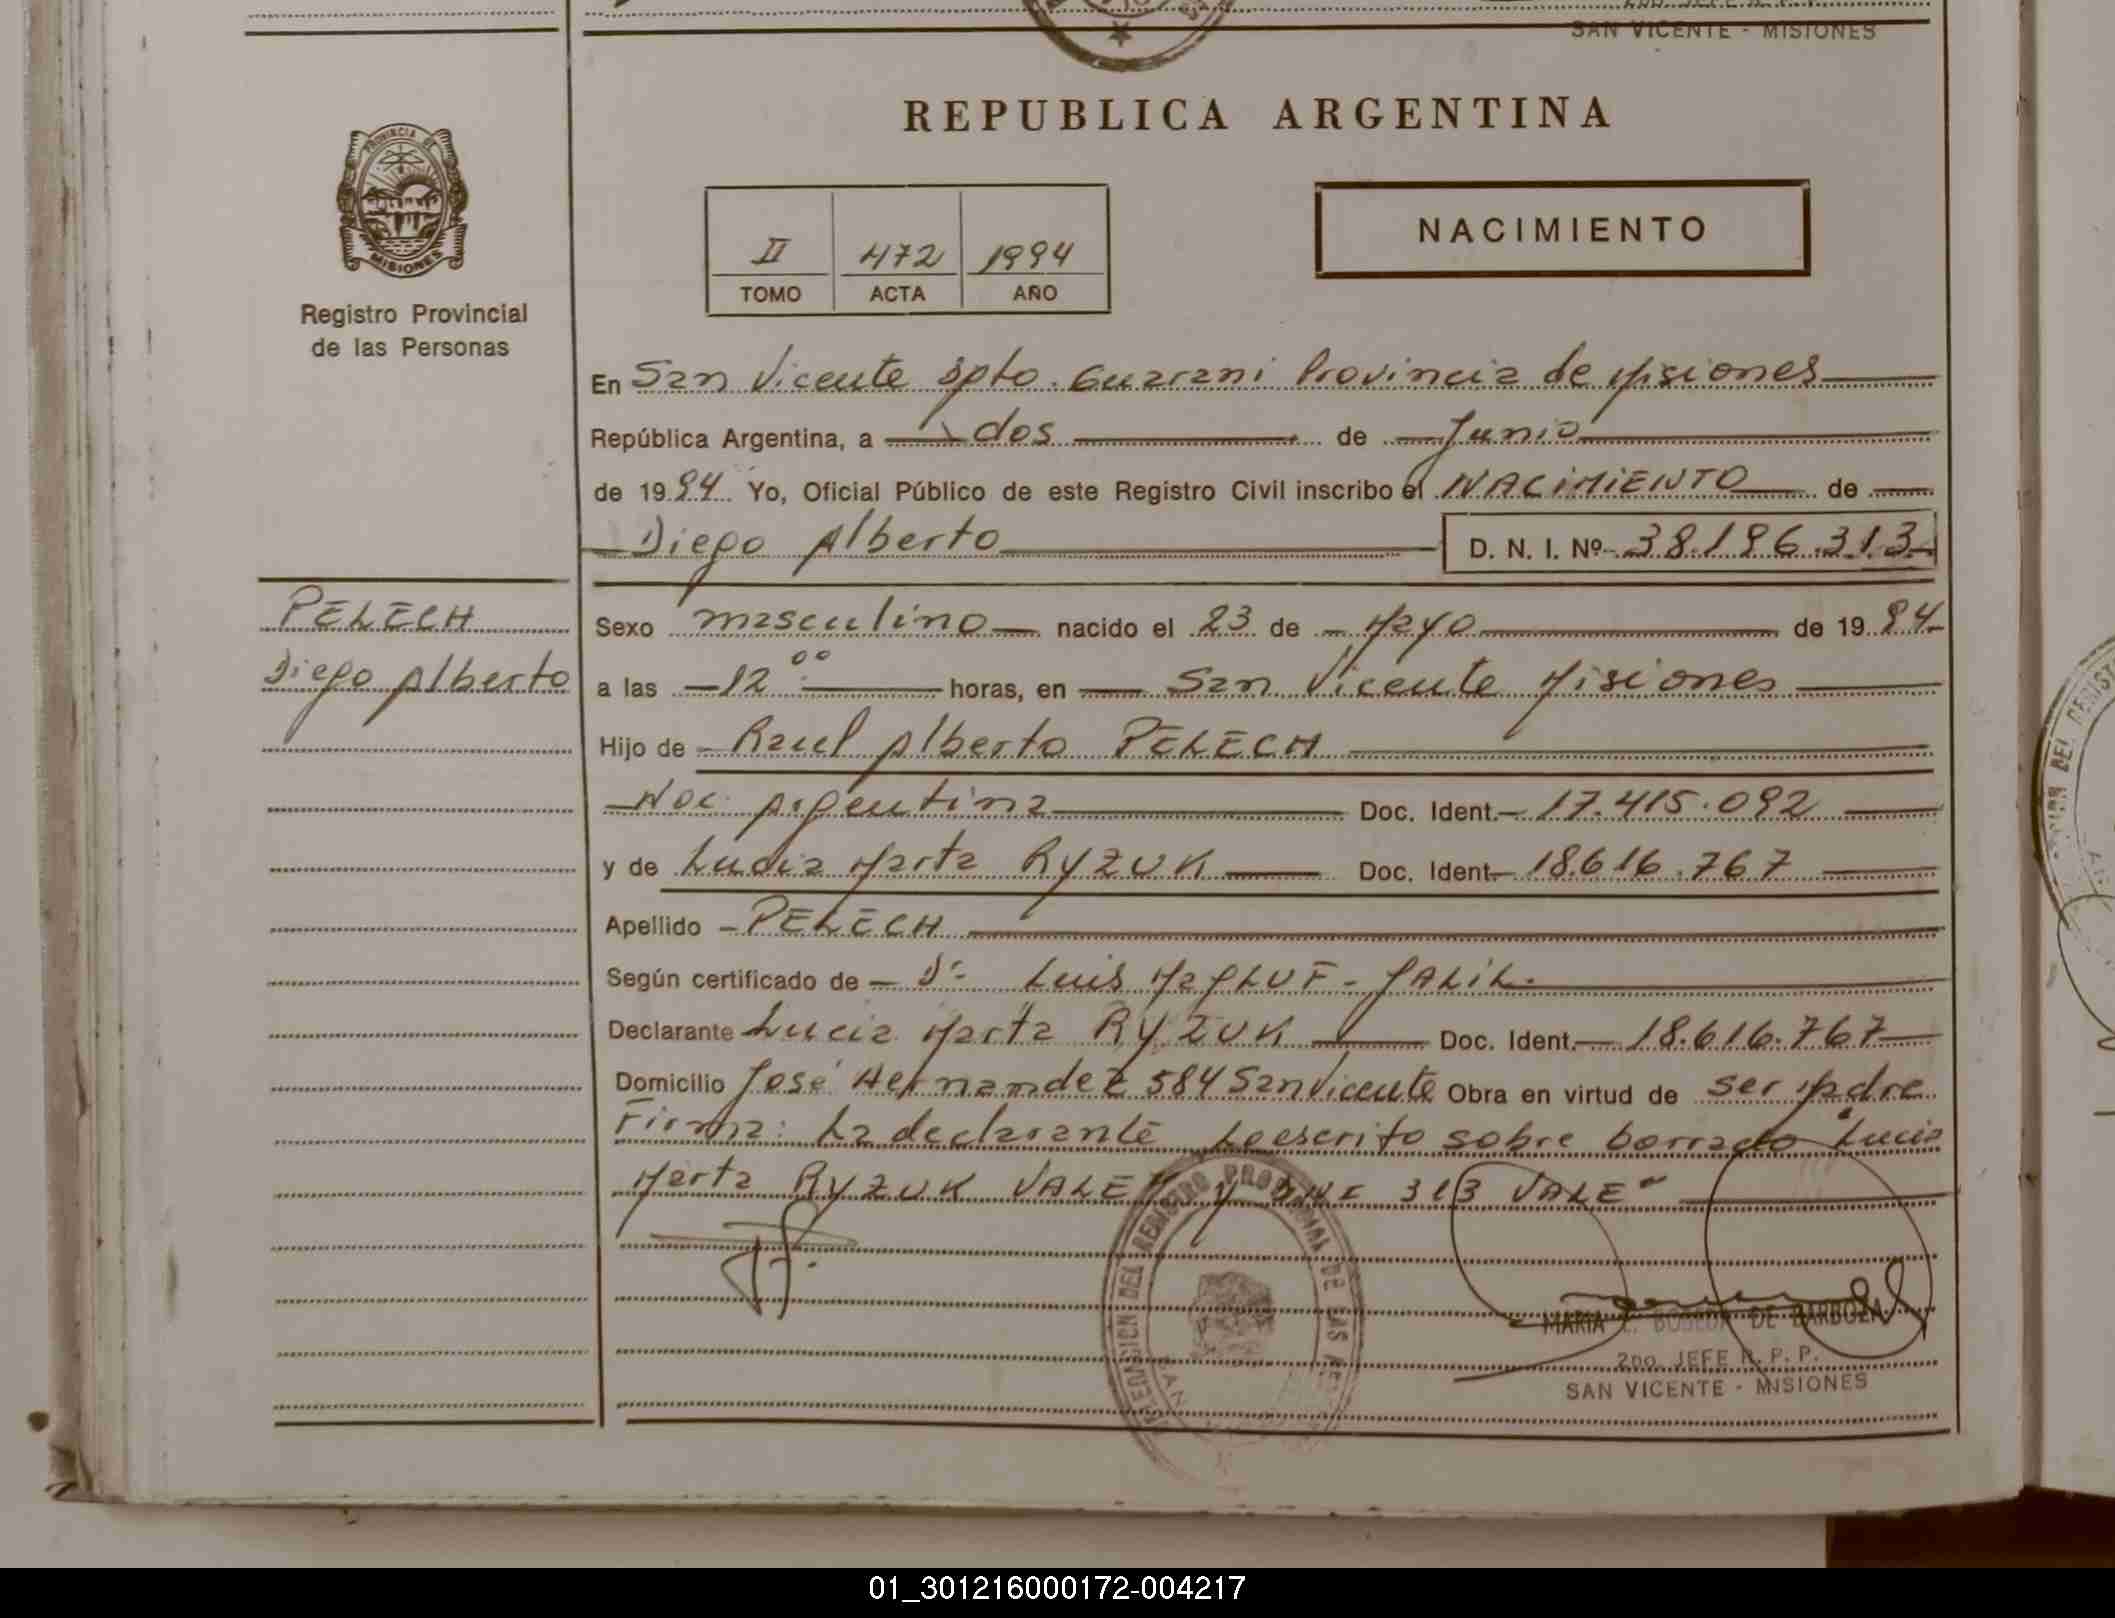 SAN VICENTE - MISIONES
REPUBLICA ARGENTINA
PROVINCIA DE
MISIONES
Registro Provincial
de las Personas
II 472 1994
TOMO ACTA AÑO
NACIMIENTO
En San Vicente Dpto. Guarani Provincia de Misiones
República Argentina, a dos de Junio
de 1994 Yo, Oficial Público de este Registro Civil inscribo el NACIMIENTO de
Diego Alberto D. N. I. Nº 38.186.313
PELECH
Diego Alberto
Sexo masculino nacido el 23 de Mayo de 1994
a las 12 00 horas, en San Vicente Misiones
Hijo de Raul Alberto PELECH
Nac. Argentina Doc. Ident. 17.415.092
y de Lucia Marta RYZUK Doc. Ident. 18.616.767
Apellido PELECH
Según certificado de Dr. Luis MaGLUF - JALIL.
Declarante Lucia Marta RYZUK Doc. Ident. 18.616.767
Domicilio José Hernandez 584 San Vicente Obra en virtud de ser Madre
Firma: La declarante Lo escrito sobre borrado "Lucia
Marta RYZUK VALE" y "DNI 313 VALE"
DEL REGISTRO PROVINCIAL DE LAS
MARIA E. DE BARBOZA
2DO. JEFE R. P. P.
SAN VICENTE - MISIONES
01_301216000172-004217